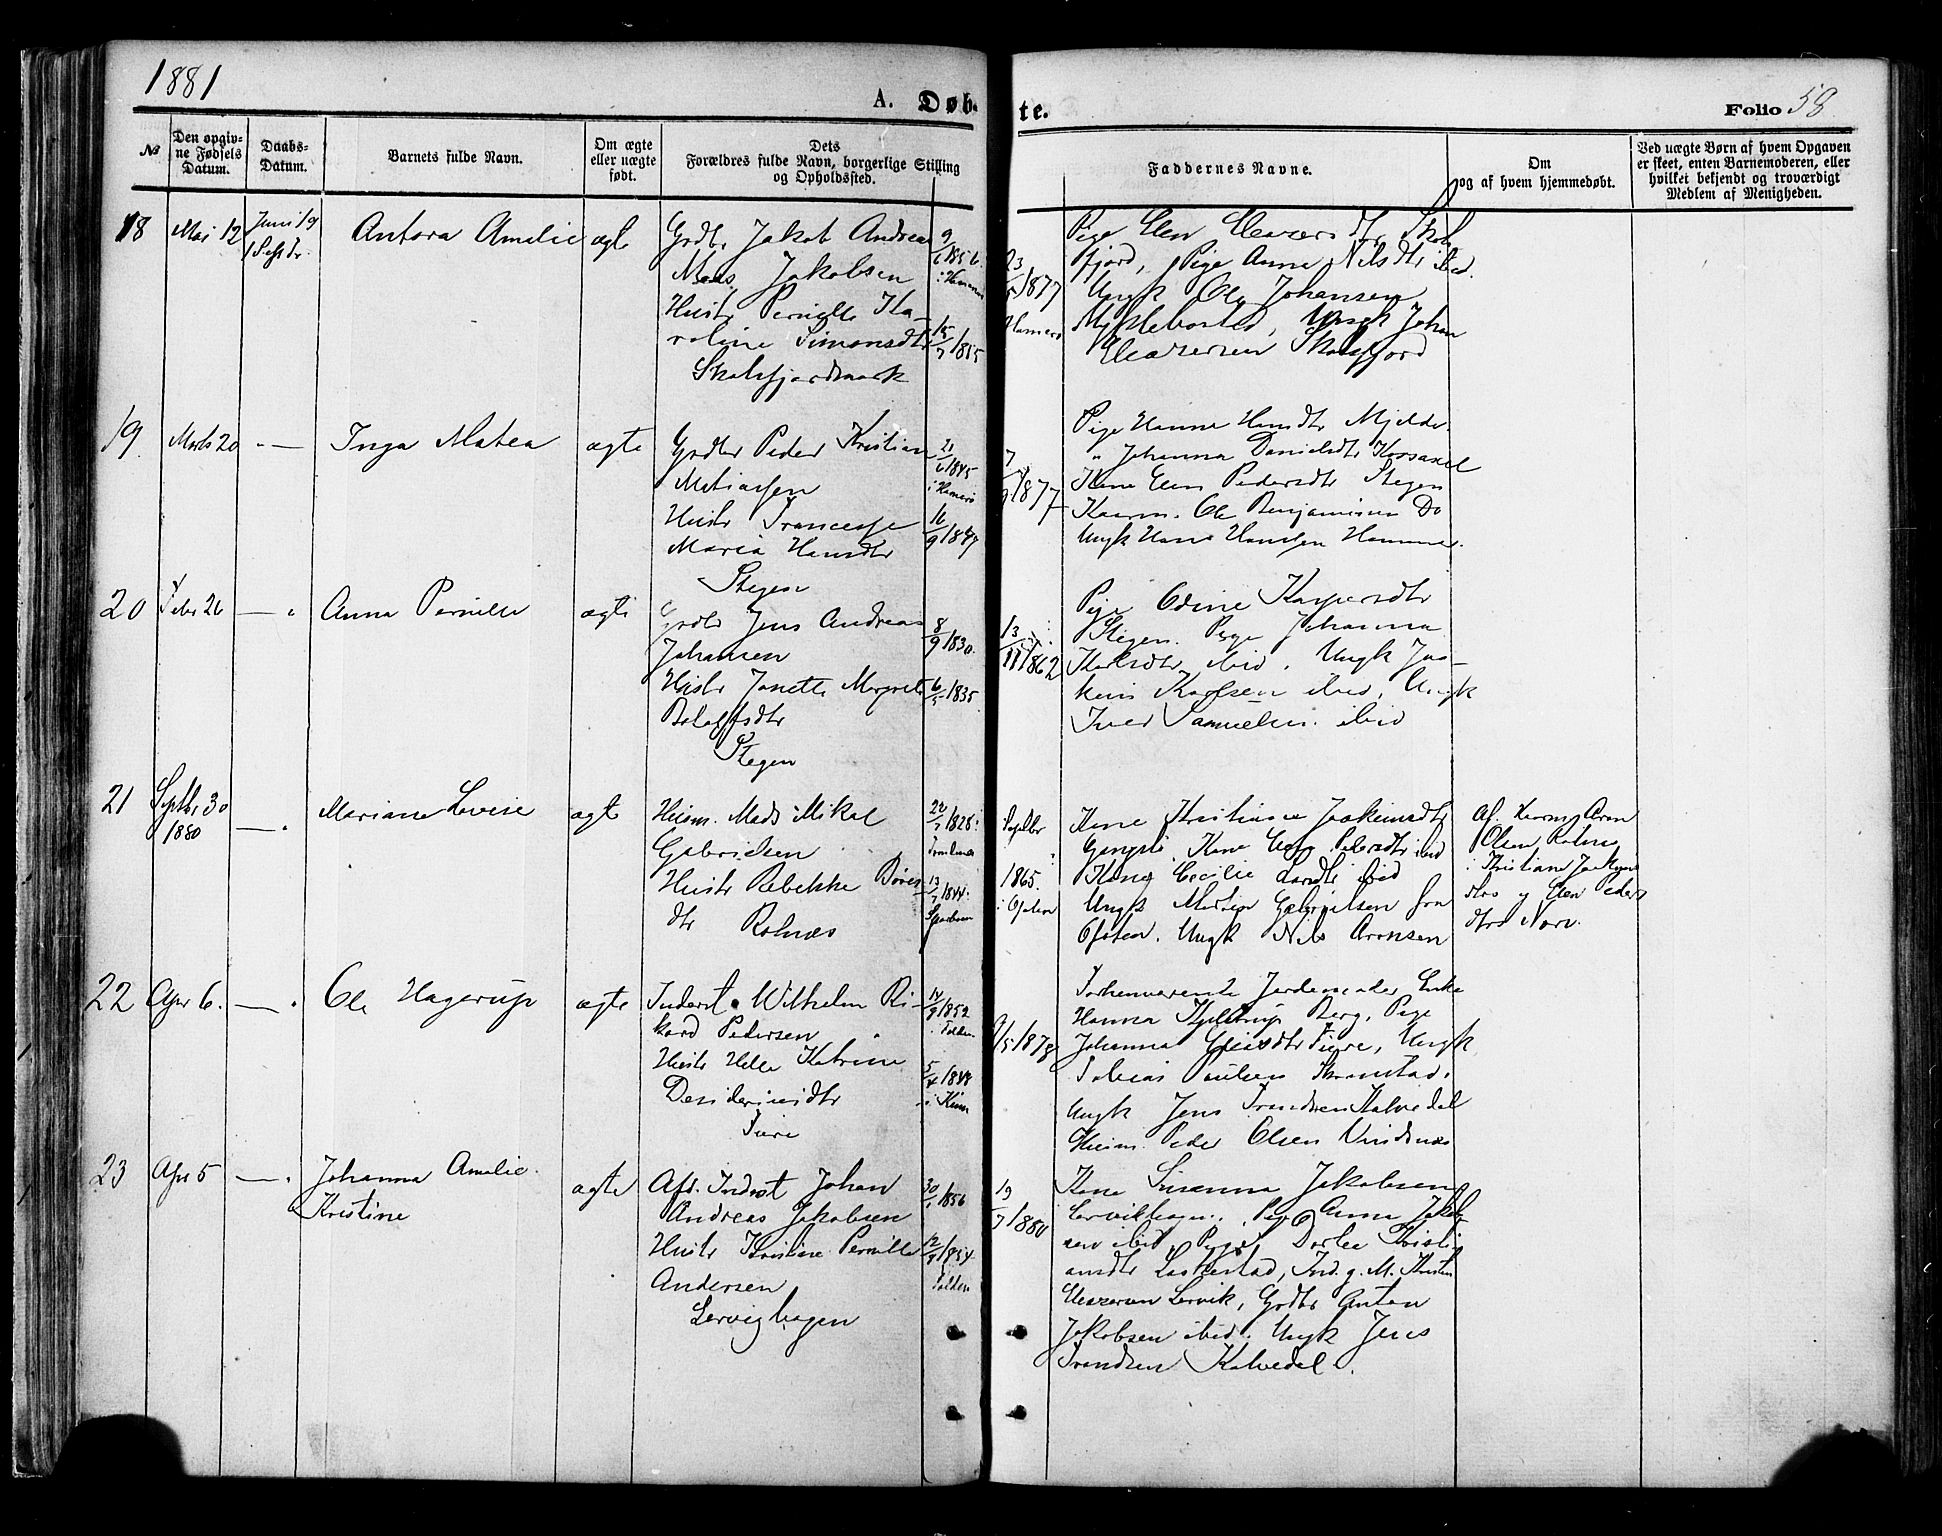 1881
A. Døb-
te.
Folio 58
No
Den opgiv-
ne Fødsels
Datum.
Daabs-
Datum.
Barnets fulde Navn.
Om ægte
eller uægte
født.
Dets
Forældres fulde Navn, borgerlige Stilling
og Opholdssted.
Faddernes Navne.
Om
og af hvem hjemmedøbt.
Ved uægte Børn af hvem Opgaven
er skeet, enten Barnemoderen, eller
hvilket bekjendt og troværdigt
Medlem af Menigheden.
18
Mai 12
Juni 19
Antora Amelie
ægte
Grdbr Jakob Andreas
Jakobsen
Hustr Pernille Ka-
roline Simonsdtr
Skotsfjordmark
1856
15/7 1855
23/5 1877
Pige Elen Eleazersdtr Skots
fjord, Pige Anne Nilsdtr ibid.
Ungk Ole Johansen
Myklebostad, Ungk Johan
Eleazersen Skotsfjord
19
Marts 20
Inga Matea
ægte
Grdbr Peder Kristian
Matiassen
Hustr
Maria Hansdtr
Stegen
21/6 1845
i Hamerø
16/9 1847
1877
Pige Hanna Hansdtr Mjelde
" Johanna Danielsdtr
Kone Elen Pedersdtr Stegen
Kaarm. Ole Benjaminsen Do
Ungk Hans Hansen Hammer.
20
Febr 26
Anna Pernille
ægte
Grdbr Jens Andreas
Johansen
Hustr Janette Margrete
Stegen
8/9 1830
6/5 1835
13/11 1862
Pige Odine Kaspersdtr
Stegen. Pige Johanna
Karlsdtr ibid. Ungk Joa-
kim Karlsen ibid, Ungk
Iver Samuelsen ibid
21
Septbr 30
1880
Mariane Lovise
ægte
Husm. Mads Mikal
Gabrielsen
Hustr Rebekke
dtr Rotnæs
22/7 1828
13/7 1844
Septbr
1865.
i Ofoten
Kone Kristiane Joakimsdtr
Kone Cecilie Larsdtr ibid
Ungk Martin Gabrielsen fra
Ofoten. Ungk Nils Aronsen
Af Kaarm Aron
Olsen Rotnæs
Kristiane Joakims
dtr og Elen Peders
dtr
22
Apr 6.
Ole Hagerup
ægte
Inderst Wilhelm Ri-
kard Pedersen
Hustr Helle Katrine
Desideriusdtr
Fure
14/9 1852
i Folden
5/4 1848
1878
Forhenværende Jordemoder Enke
Hanna Hjeltrup Berg, Pige
Johanna Eliasdtr Fure, Ungk
Tobias Paulsen Skomstad.
Ungk Jens Trondsen Kalvedal
Husm. Peder Olsen Vindsnæs
23
Apr 5
Johanna Amelie
Kristine
ægte
Afd. Inderst Johan
Andreas Jakobsen
Hustr Kristine Pernille
Andersen
Lervighagen
1856
1854
Folden
19/7 1880
Kone Susanna Jakobsen
Lervikhagen. Pige Anna Jakob
sen ibid. Pige Dorlee Kristi-
ansdtr Laskestad, Ind. g. M. Kristen
Eleazersen Lervik, Grdbr Anton
Jakobsen ibid. Ungk Jens
Trondsen Kalvedal.